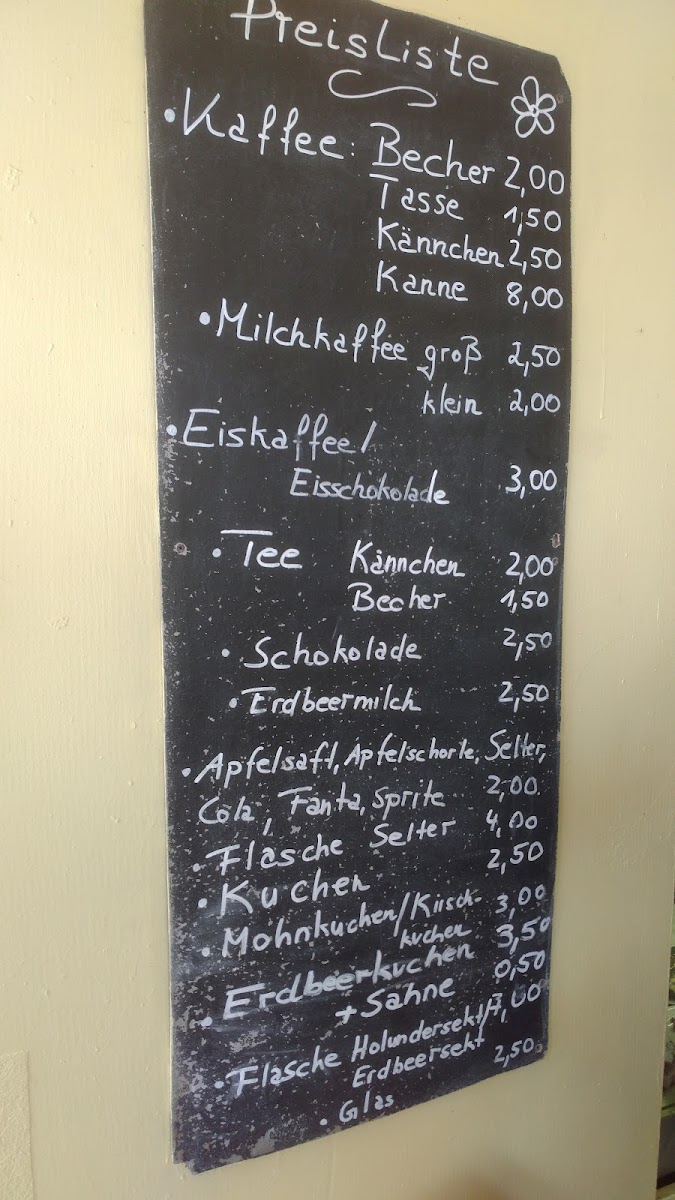 Preisliste
• Kaffee: Becher 2,00
Tasse 1,50
Kännchen 2,50
Kanne 8,00
• Milchkaffee groß 2,50
klein 2,00
• Eiskaffee/
Eisschokolade 3,00
• Tee Kännchen 2,00
Becher 1,50
• Schokolade 2,50
• Erdbeermilch 2,50
• Apfelsaft, Apfelschorle, Selter,
Cola, Fanta, Sprite 2,00
• Flasche Selter 4,00
• Kuchen 2,50
• Mohnkuchen/Kirsch-
kuchen 3,00
• Erdbeerkuchen 3,50
+ Sahne 0,50
• Flasche Holundersekt/
Erdbeersekt
• Glas 2,50